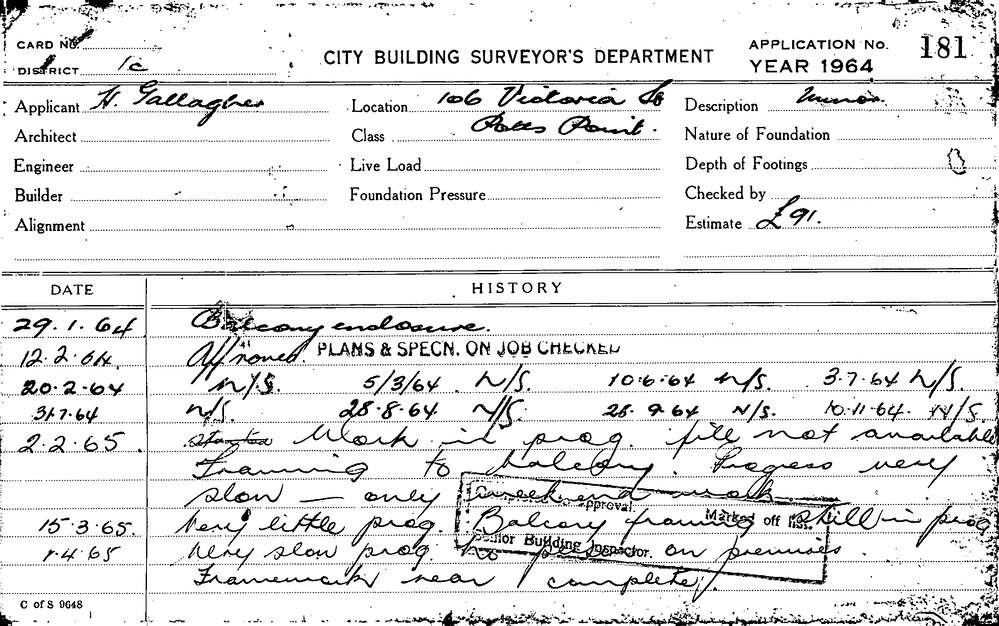 CARD No.
DISTRICT 1c
CITY BUILDING SURVEYOR'S DEPARTMENT
APPLICATION No. 181
YEAR 1964
Applicant H. Gallagher
Location 106 Victoria St
Potts Point.
Description Minor
Architect
Class
Nature of Foundation
Engineer
Live Load
Depth of Footings
Builder
Foundation Pressure
Checked by
Alignment
Estimate £91.
DATE HISTORY
29.1.64 Balcony enclosure.
12.2.64 Approved. PLANS & SPECN. ON JOB CHECKED
20.2.64 N/S. 5/3/64 N/S. 10.6.64 N/S. 3.7.64 N/S.
31.7.64 N/S. 28.8.64 N/S. 28.9.64 N/S. 10.11.64. N/S.
2.2.65. Work in prog. file not available
Framing to balcony. Progress very
slow — only weekend work
approval.
15.3.65. Very little prog. Balcony framing still in prog
Marked off list.
Senior Building Inspector.
1.4.65 Very slow prog. No person on premises.
Framework near complete.
C of S 9648